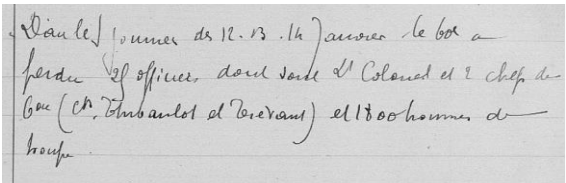 Dans les journées des 12. 13. 14 Janvier le 60e a
perdu 25 officiers dont un Lt Colonel et 2 chefs de
Bon (Ct. Thibaulot et ) et 1800 hommes de
troupe